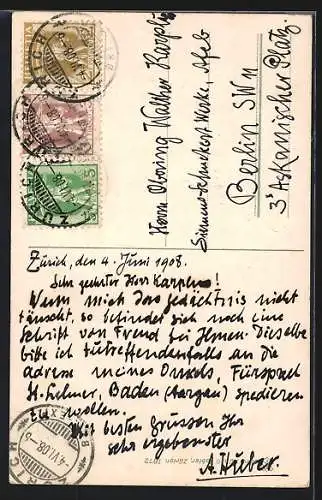 Herrn Obering. Walther Karplus
Siemens-Schuckert Werke, A/ab
Berlin SW 11
3 Askanischer Platz.
Zürich, den 4. Juni 1908.
Sehr geehrter Herr Karplus!
Wenn mich das Gedächtnis nicht
täuscht, so befindet sich noch eine
Schrift von Freud bei Ihnen. Dieselbe
bitte ich zutreffendenfalls an die
Adresse meines Onkels, Fürspred
H. Lehner, Baden (Aargau) spedieren
zu wollen.
Mit besten Grüssen Ihr
sehr ergebenster
A. Huber.
HELVETIA
ZÜRICH
4.VI.08.-5